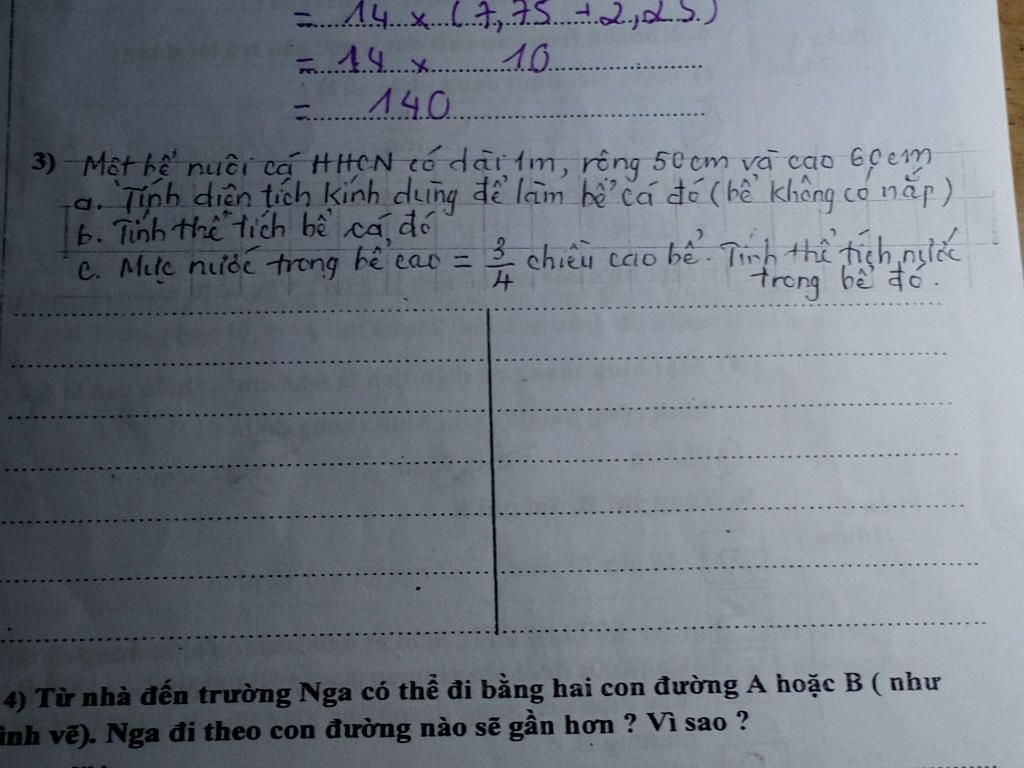 = 14 x (7,75 + 2,25)
= 14 x 10
= 140
3) Một bể nuôi cá HHCN có dài 1m, rộng 50cm và cao 60cm
a. Tính diện tích kính dùng để làm bể cá đó (bể không có nắp)
b. Tính thể tích bể cá đó
c. Mực nước trong bể cao = 3/4 chiều cao bể. Tính thể tích nước
trong bể đó.
4) Từ nhà đến trường Nga có thể đi bằng hai con đường A hoặc B ( như
ình vẽ). Nga đi theo con đường nào sẽ gần hơn ? Vì sao ?